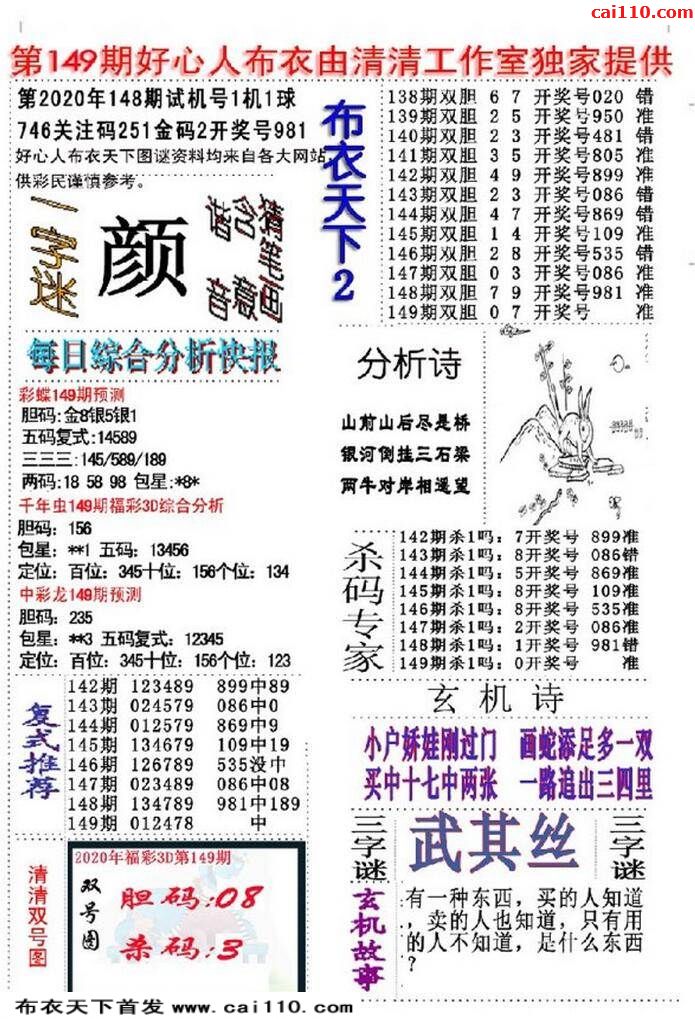 cai110.com
第149期好心人布衣由清清工作室独家提供
第2020年148期试机号1机1球
746关注码251金码2开奖号981
好心人布衣天下图谜资料均来自各大网站
供彩民谨慎参考。
一字迷
颜
猜笔画
含意
猜音
布衣天下2
138期双胆 6 7 开奖号020 错
139期双胆 2 5 开奖号950 准
140期双胆 2 3 开奖号481 错
141期双胆 3 5 开奖号805 准
142期双胆 4 9 开奖号899 准
143期双胆 2 3 开奖号086 错
144期双胆 4 7 开奖号869 错
145期双胆 1 4 开奖号109 准
146期双胆 2 8 开奖号535 错
147期双胆 0 3 开奖号086 准
148期双胆 7 9 开奖号981 准
149期双胆 0 7 开奖号 准
每日综合分析快报
彩蝶149期预测
胆码:金8银5银1
五码复式:14589
三三三:145/589/189
两码:18 58 98 包星:*8*
千年虫149期福彩3D综合分析
胆码: 156
包星: **1 五码: 13456
定位: 百位: 345十位: 156个位: 134
中彩龙149期预测
胆码: 235
包星: **3 五码复式: 12345
定位: 百位: 345十位: 156个位: 123
分析诗
山前山后尽是桥
银河倒挂三石梁
两牛对岸相遥望
杀码专家
142期杀1吗: 7开奖号 899准
143期杀1吗: 8开奖号 086错
144期杀1吗: 5开奖号 869准
145期杀1吗: 8开奖号 109准
146期杀1吗: 8开奖号 535准
147期杀1吗: 2开奖号 086准
148期杀1吗: 1开奖号 981错
149期杀1吗: 0开奖号 准
复式推荐
142期 123489 899中89
143期 024579 086中0
144期 012579 869中9
145期 134679 109中19
146期 126789 535没中
147期 023789 086中08
148期 134789 981中189
149期 012478 中
玄机诗
小户娇娃刚过门 画蛇添足多一双
买中十七中两张 一路追出三四里
三字谜
武其丝
三字谜
清清双号图
2020年福彩3D第149期
双号图
胆码:08
杀码:3
玄机故事
有一种东西，买的人知道
，卖的人也知道，只有用
的人不知道，是什么东西
？
布衣天下首发 www.cai110.com